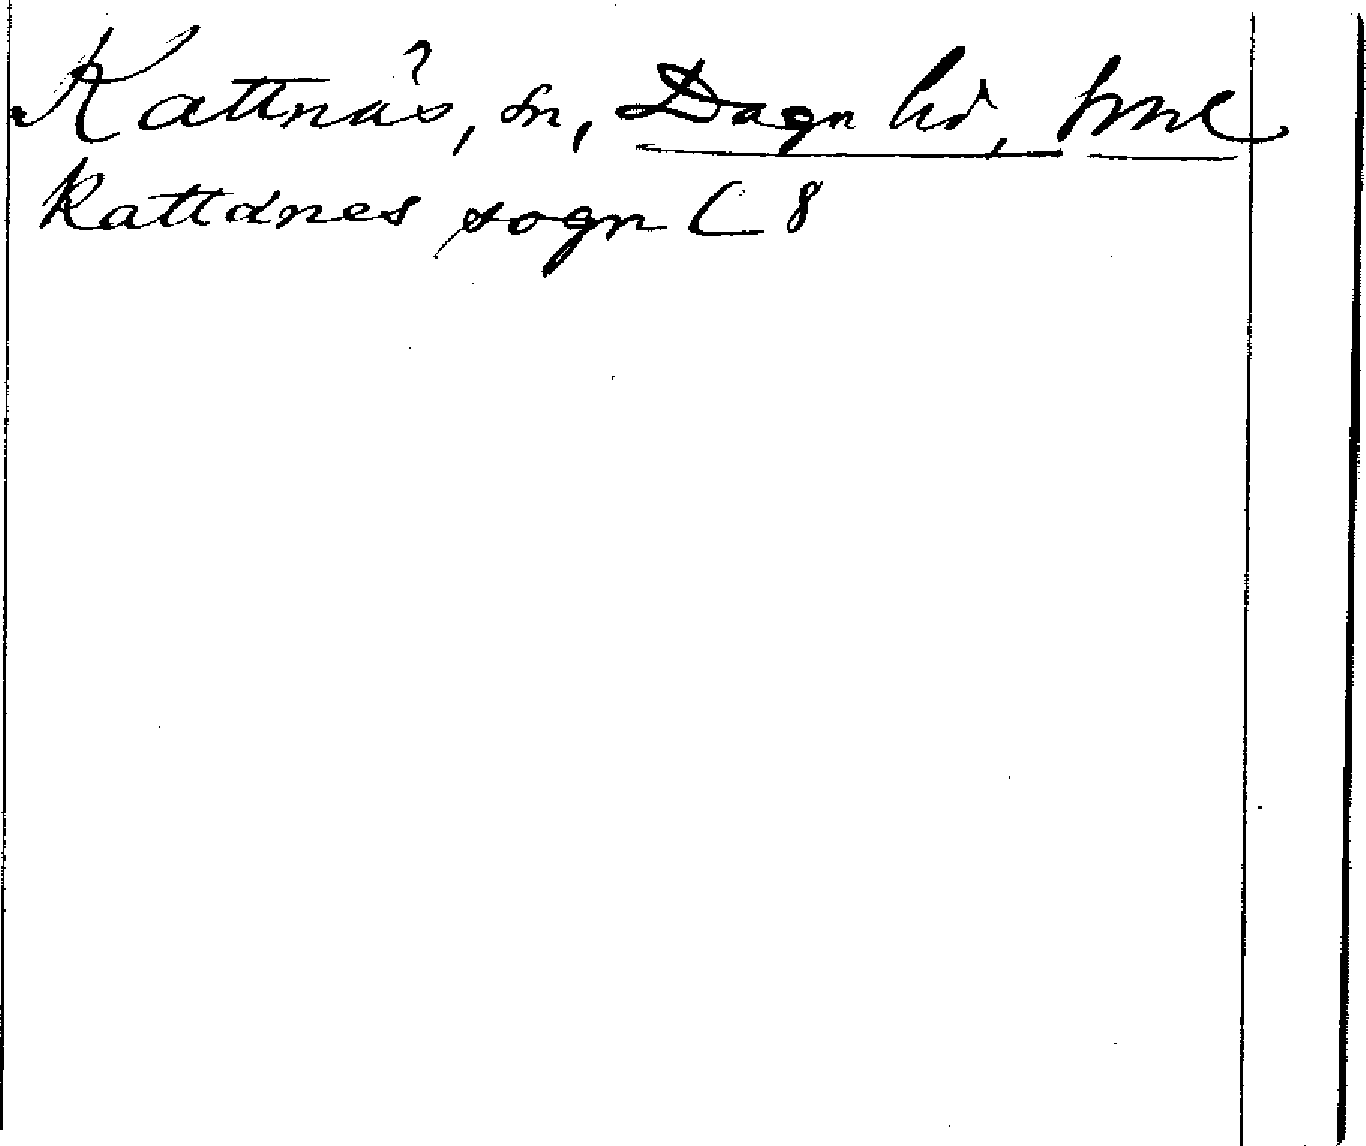 Kattnäs, sn, Daga hd, Sml
Kattdnes sogn C 8